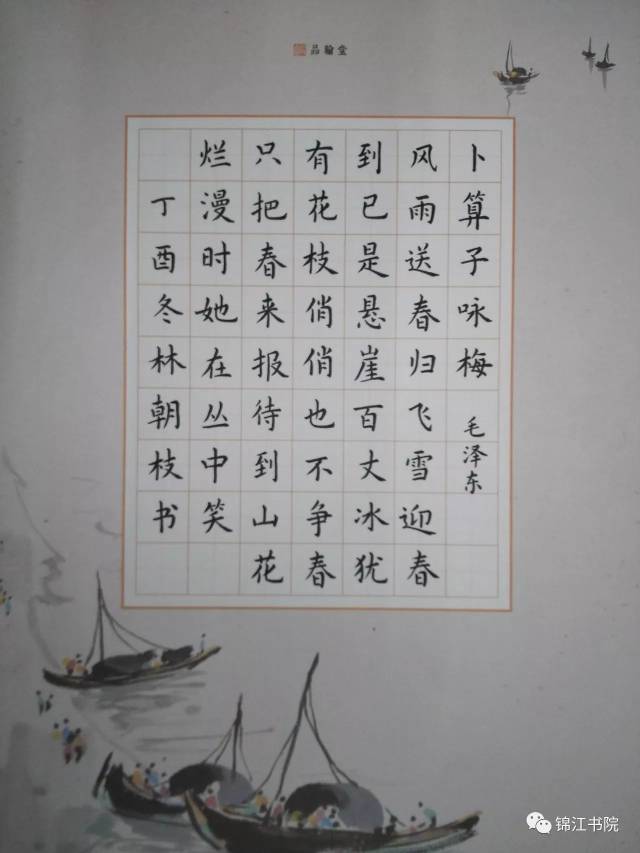 品翰堂
卜算子咏梅 毛泽东
风雨送春归飞雪迎春
到已是悬崖百丈冰犹
有花枝俏俏也不争春
只把春来报待到山花
烂漫时她在丛中笑
丁酉冬林朝枝书
锦江书院